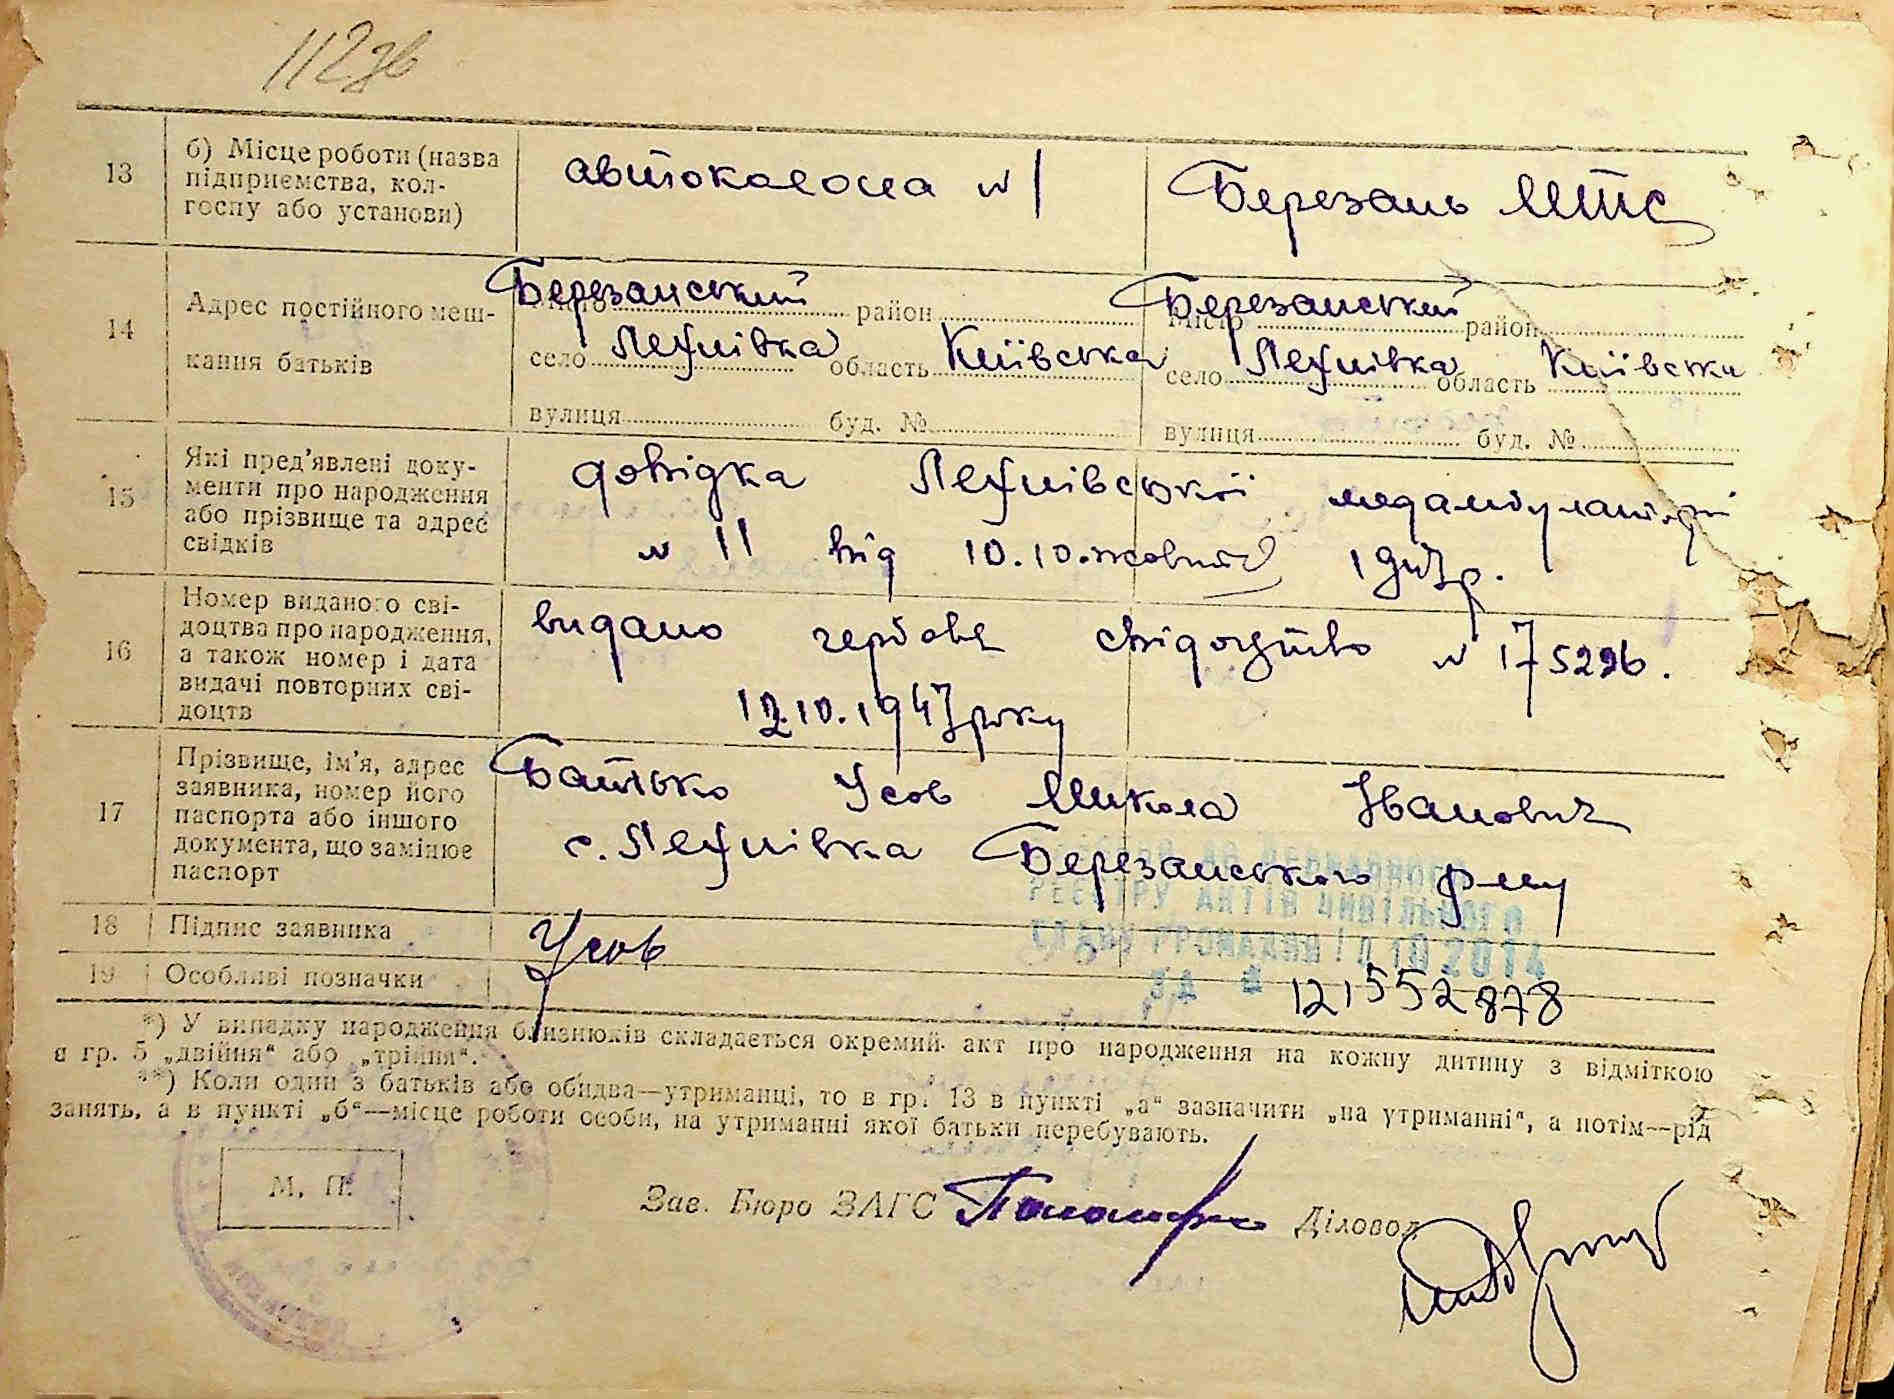 112зв
13
б) Місце роботи (назва
підприємства, кол-
госпу або установи)
автоколона № 1
Березань МТС
14
Адрес постійного меш-
кання батьків
Березанський район
село Лехнівка область Київська
вулиця буд. №
Березанський
місто район
село Лехнівка область Київська
вулиця буд. №
15
Які пред'явлені доку-
менти про народження
або прізвище та адрес
свідків
довідка Лехнівської медамбулаторії
№ 11 від 10.10.жовтня 1947р.
16
Номер виданого сві-
доцтва про народження,
а також номер і дата
видачі повторних сві-
доцтв
видано гербове свідоцтво № 175226.
12.10.1947року
17
Прізвище, ім'я, адрес
заявника, номер його
паспорта або іншого
документа, що замінює
паспорт
Батько Усов Микола Іванович
с. Лехнівка Березанського р-ну
18
Підпис заявника
Усов
19
Особливі позначки
ДО ДЕРЖАВНОГО
РЕЄСТРУ АКТІВ ЦИВІЛЬНОГО
СТАНУ ГРОМАДЯН 10 2014
ЗА № 121552878
*) У випадку народження близнюків складається окремий акт про народження на кожну дитину з відміткою
в гр. 5 „двійня“ або „трійня“.
**) Коли один з батьків або обидва—утриманці, то в гр. 13 в пункті „а“ зазначити „на утриманні“, а потім—рід
занять, а в пункті „б“—місце роботи особи, на утриманні якої батьки перебувають.
М. П.
Зав. Бюро ЗАГС
Діловод